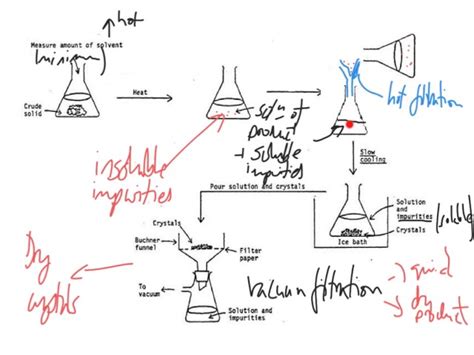 hot
Measure amount of solvent
(minimum)
Crude
solid
Heat
insoluble
impurities
soln of
product
+ soluble
impurities
hot filtration
Slow
cooling
Pour solution and crystals
Solution
and
impurities
(soluble)
Crystals
Ice bath
Crystals
Buchner
funnel
Filter
paper
To
vacuum
Solution and
impurities
vacuum filtration
Dry
crystals
dry
product